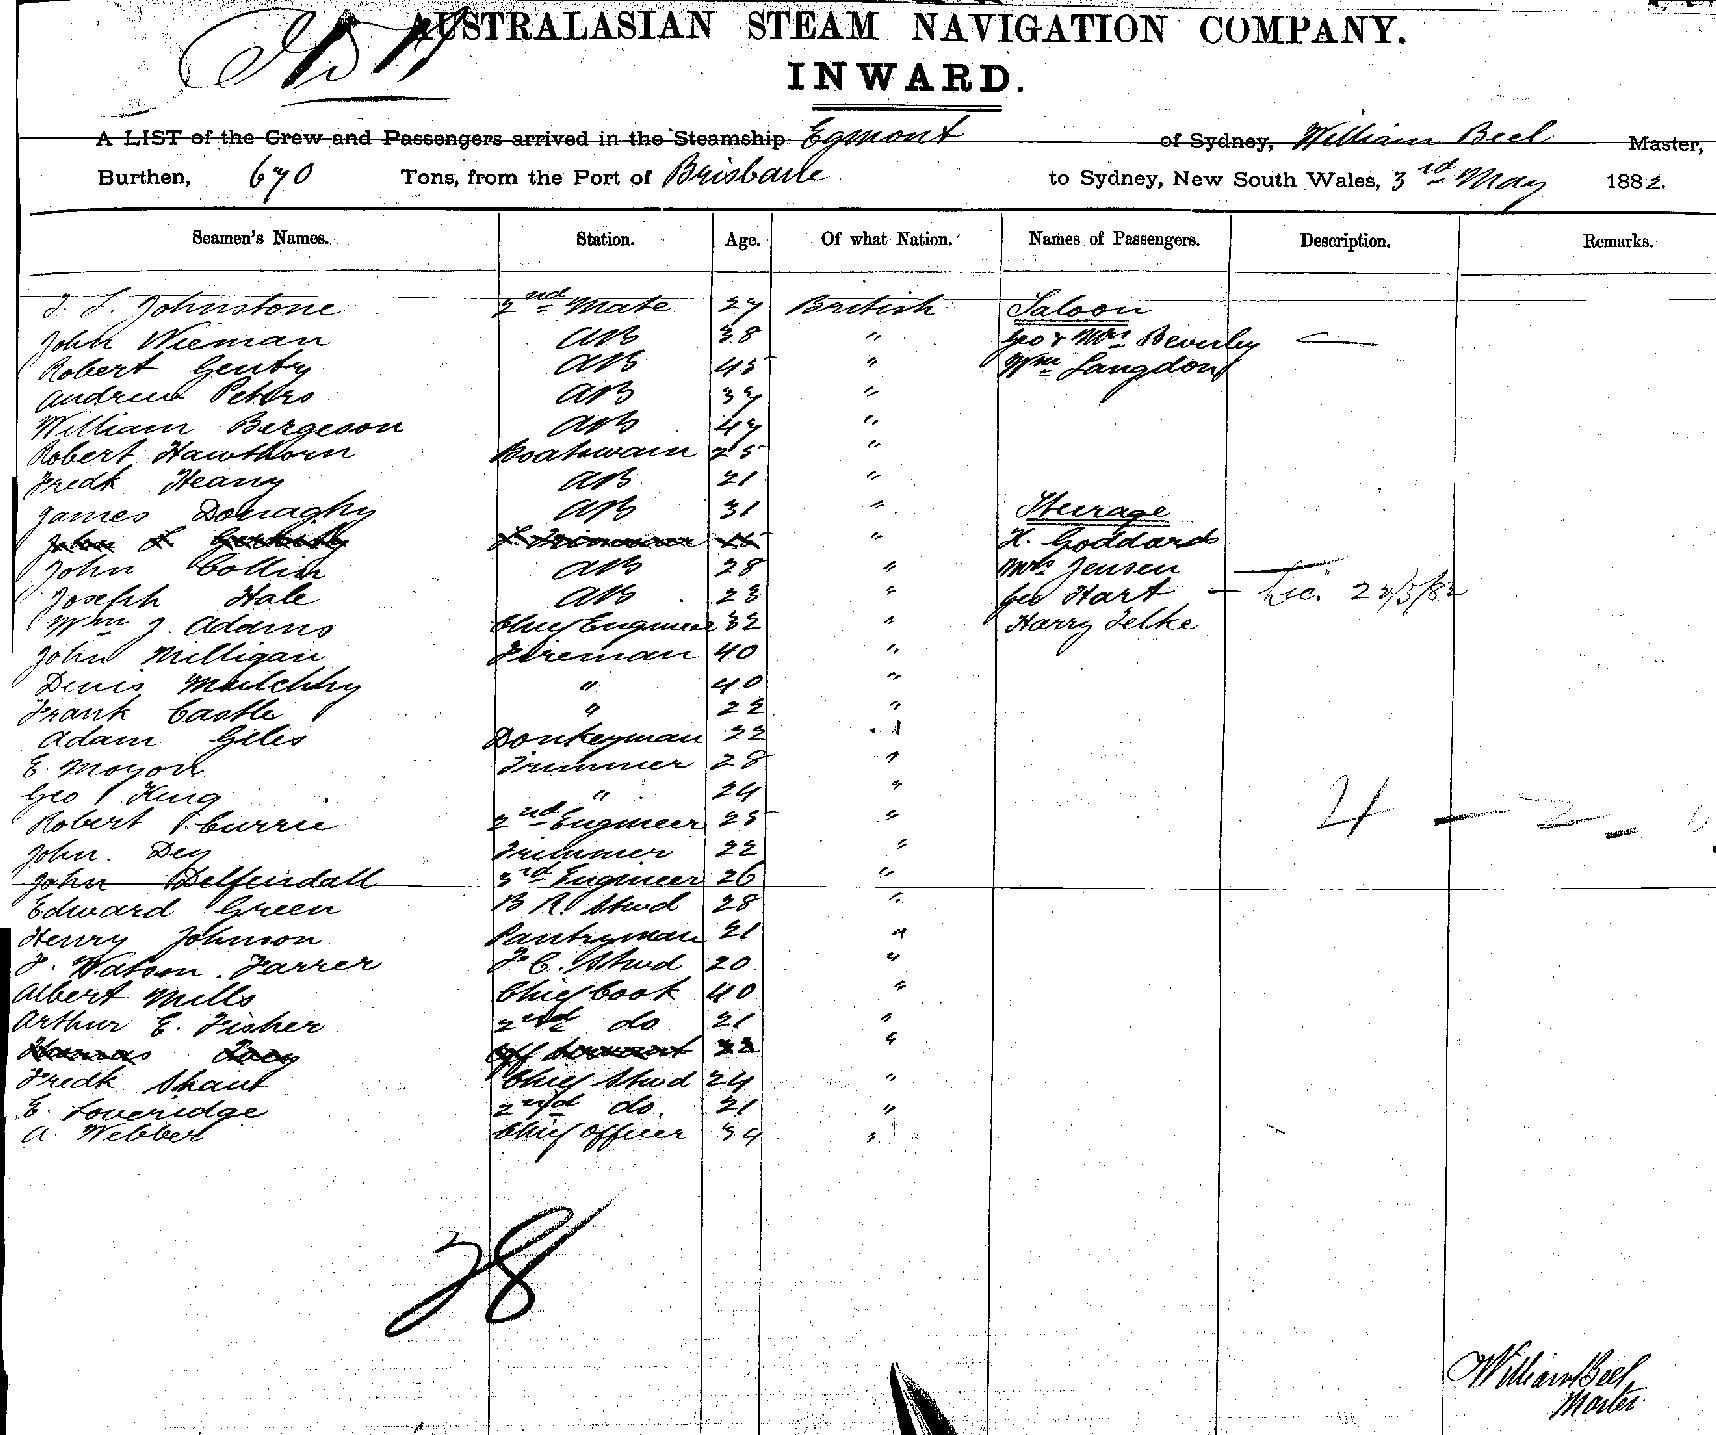 AUSTRALASIAN STEAM NAVIGATION COMPANY.
INWARD.
A LIST of the Crew and Passengers arrived in the Steamship Egmont of Sydney, William Beel Master,
Burthen, 670 Tons, from the Port of Brisbane to Sydney, New South Wales, 3rd May 1882.
Seamen's Names. Station. Age. Of what Nation. Names of Passengers. Description. Remarks.
Johnstone 2nd Mate 27 British Saloon
John Wieman AB 38 " Geo & Mrs Beverley —
Robert Genty AB 45 " Wm Langdon
Andrew Peters AB 37 "
William Bergeson AB 47 "
Robert Hawthorn Boatswain 25 "
Fredk Heany AB 21 "
James Donaghy AB 31 " Steerage
John " H. Goddard
John Collin AB 28 " Mrs Jensen
Joseph Hale AB 23 " Hart —
Wm J. Adams Chief Engineer 32 " Harry Felke
John Milligan Fireman 40 "
Denis " 40 "
Frank Castle " 22 "
Adam Giles Donkeyman 32 "
E. Trimmer 28 "
Geo King " 24 "
Robert Currie 2nd Engineer 25 "
John Dey Trimmer 22 "
John 3rd Engineer 26 "
Edward Green Stwd 28 "
Henry Johnson Pantryman 21 "
F. Watson Farrer F. C. Stwd 20 "
Albert Mills Chief Cook 40 "
Arthur E. Fisher 2nd do 21 "
"
Fredk Shaut Chief Stwd 24 "
E. Loveridge 2nd do. 21 "
A. Webber Chief Officer 34 "
4 — 2 —
38
William Beel
Master